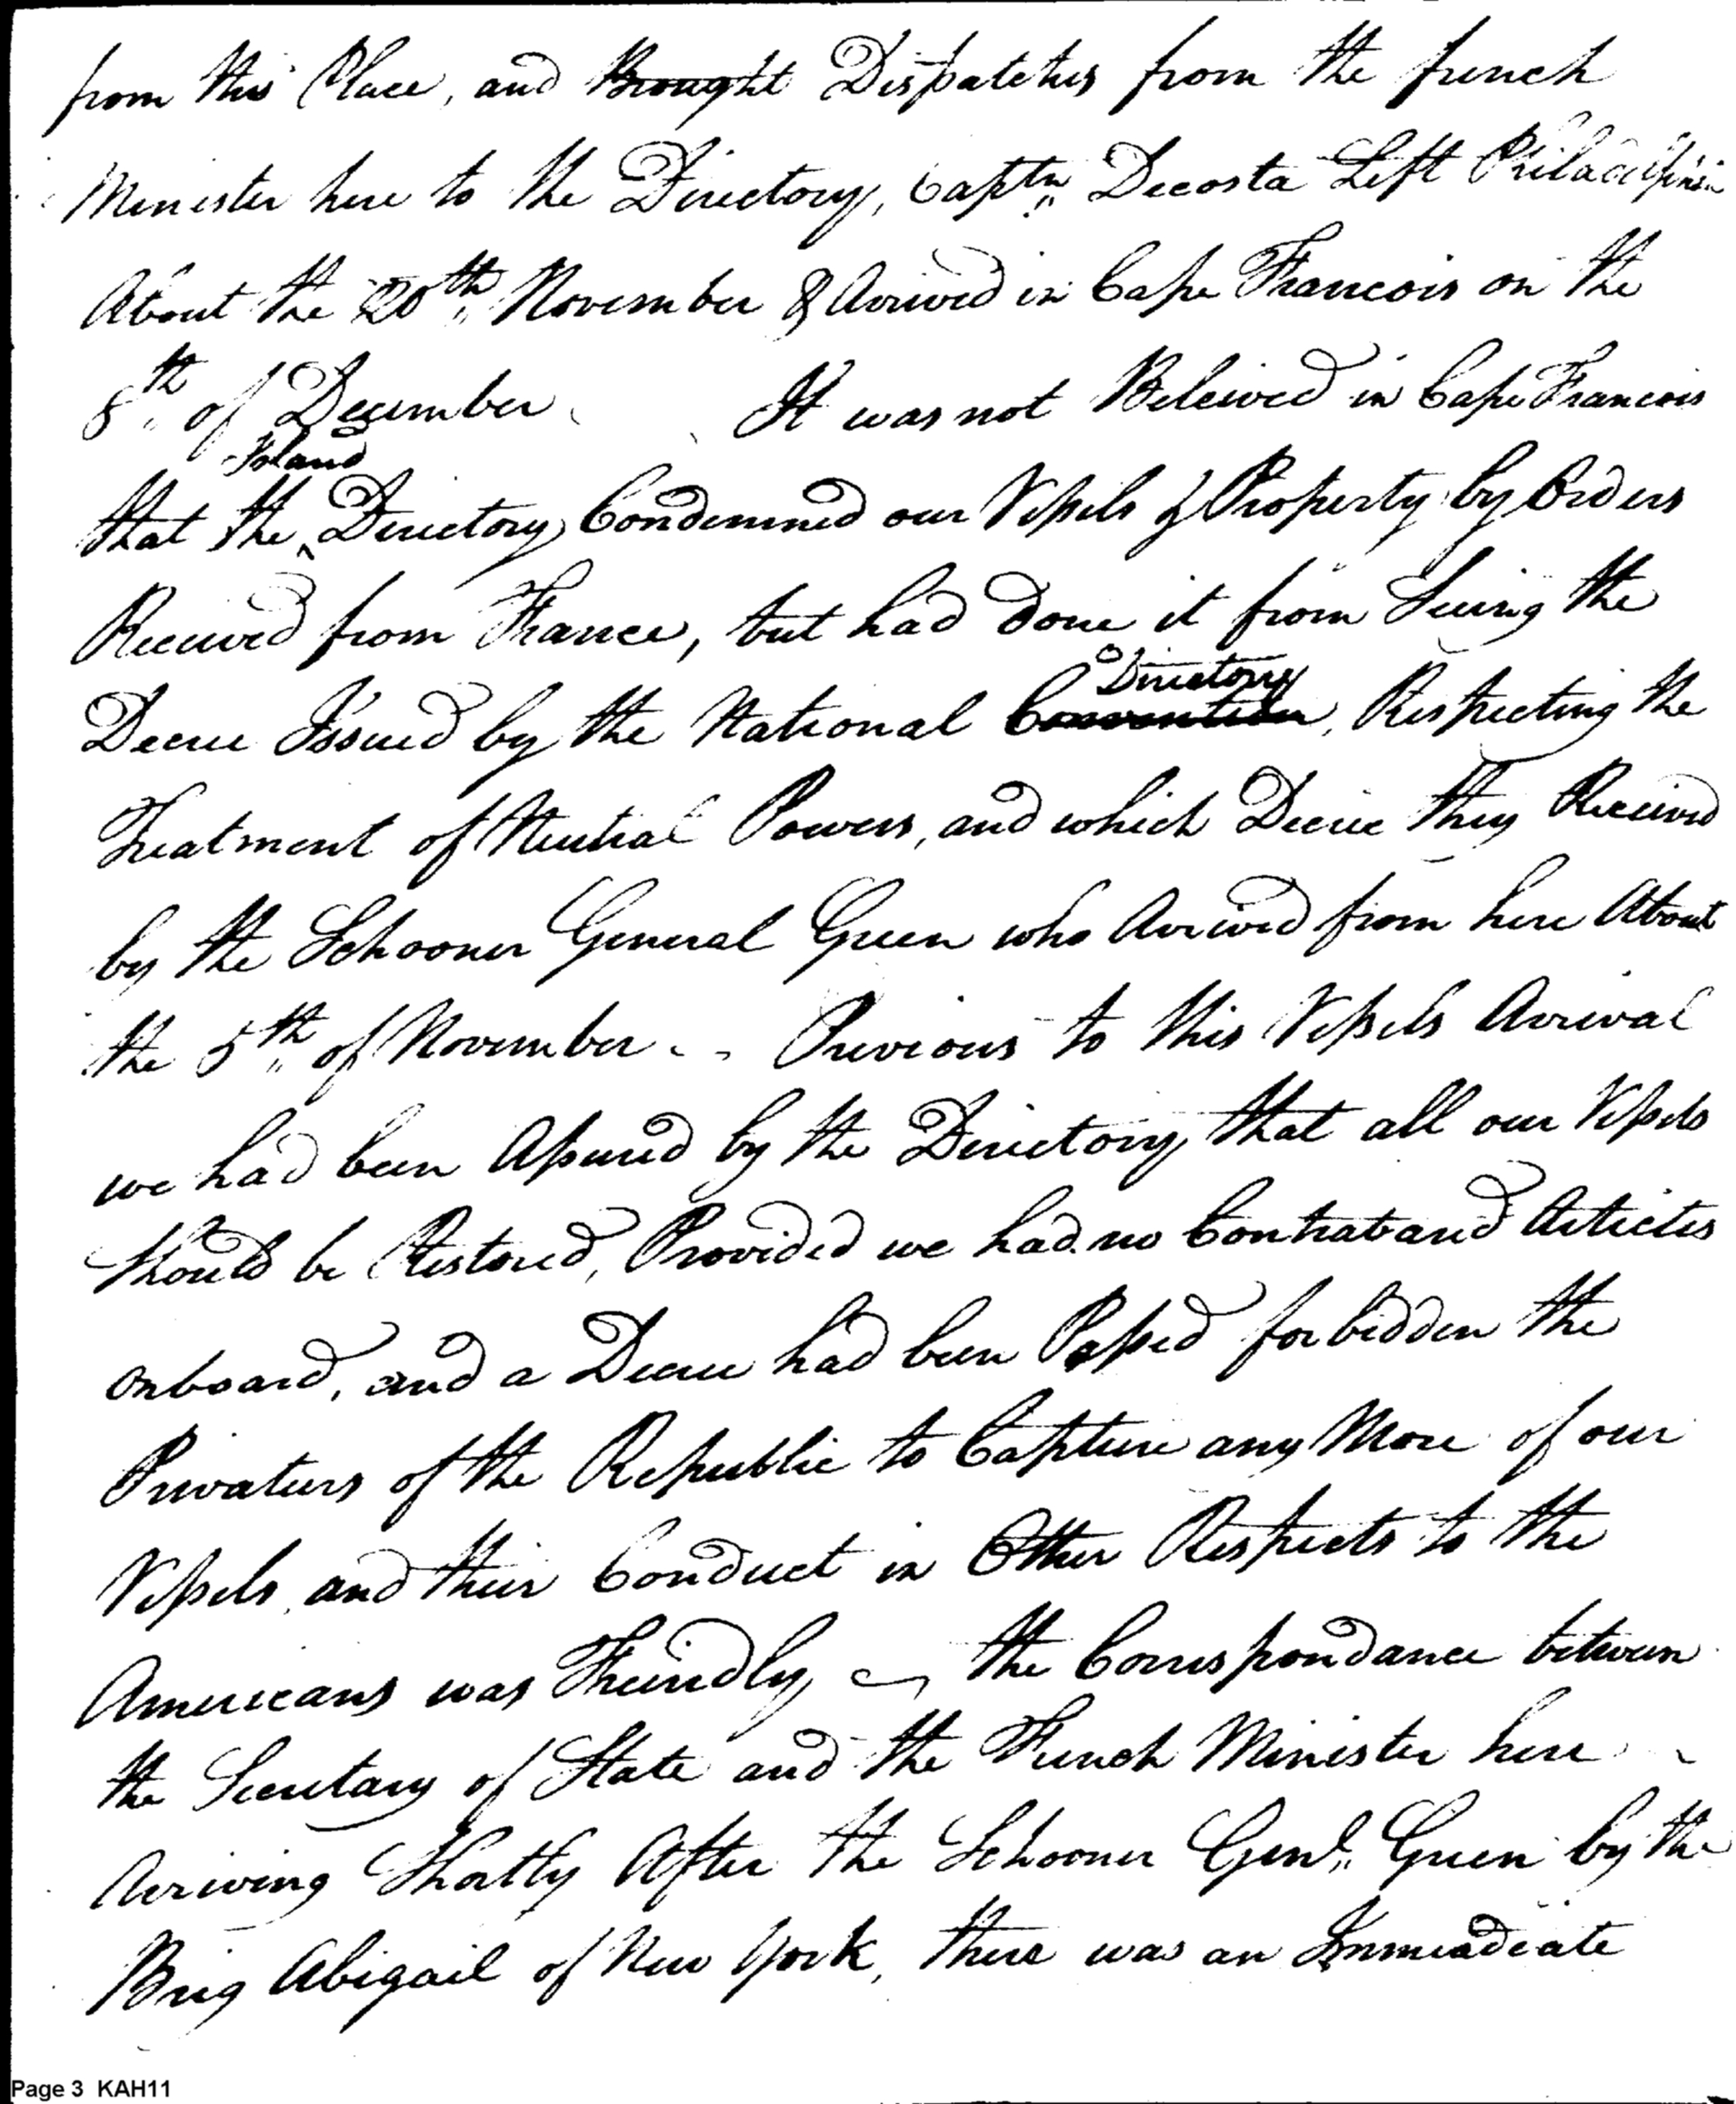 from this Place, and Brought Dispatches from the french
Minister here to the Directory, Captn Decosta Left Philadelphia
About the 20th November & Arrived in Cape Francois on the
8th of December. It was not Beleived in Cape Francois
Island
that the ^ Directory Condemned our Vessels & Property by Orders
Received from France, but had done it from Seeing the
Directory
Decree Issued by the National Convention, Respecting the
Treatment of Neutral Powers, and which Decree they Received
by the Schooner General Green who Arrived from here About
the 5th of November - - Previous to this Vessels Arrival
we had been Assured by the Directory, that all our Vessels
Should be Restored, Provided we had no Contraband Articles
onboard, and a Decree had been Passed forbidden the
Privateers of the Republic to Capture any More of our
Vessels, and their Conduct in Other Respects to the
Americans was Freindly — the Correspondance between
the Secretary of State and the French Minister here
Arriving Shortly After the Schooner Genl. Green by the
Brig Abigail of New York, there was an Immeadeate
Page 3 KAH11